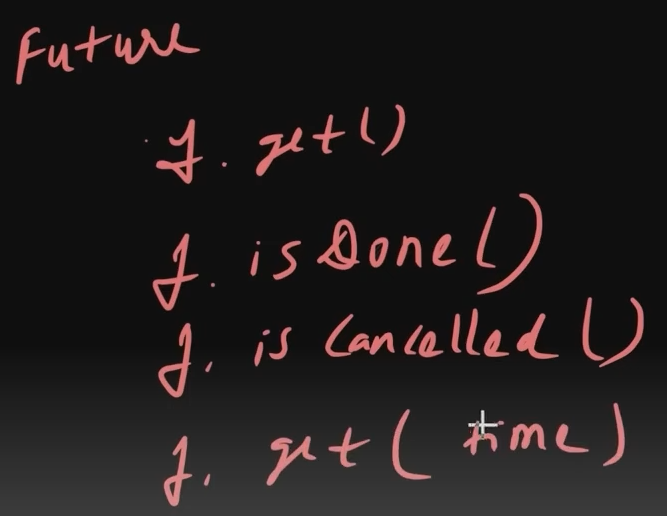 Future
f. get()
f. isDone()
f. is Cancelled ()
f. get( time)